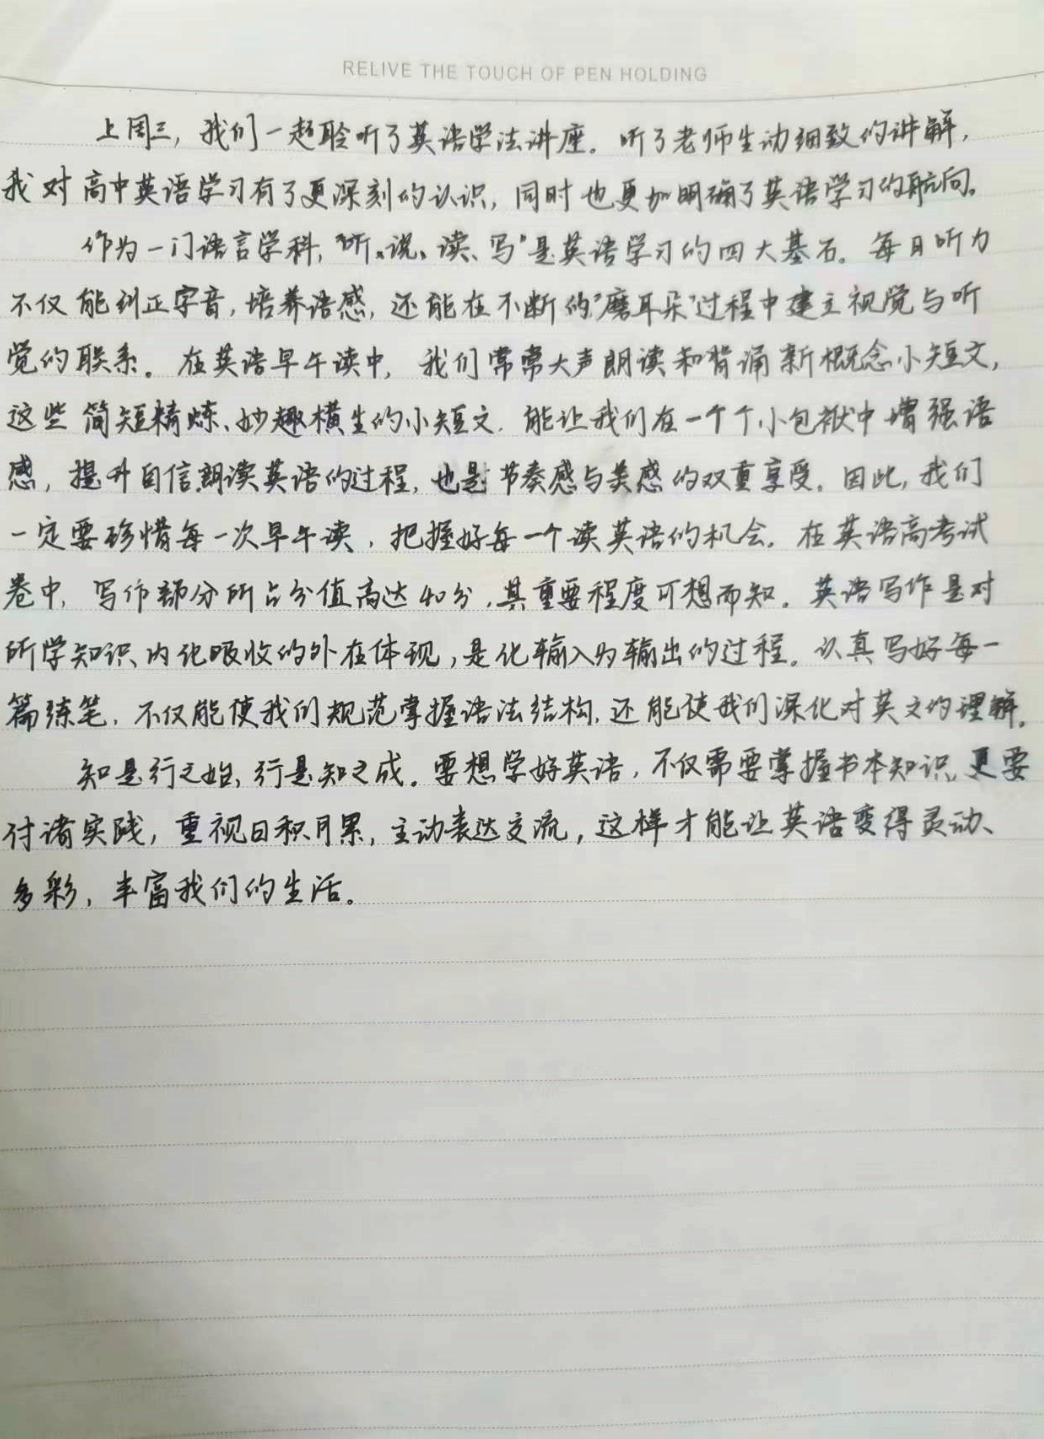 RELIVE THE TOUCH OF PEN HOLDING
上周三，我们一起聆听了英语学法讲座。听了老师生动细致的讲解，
我对高中英语学习有了更深刻的认识，同时也更加明确了英语学习的航向。
作为一门语言学科，“听、说、读、写”是英语学习的四大基石。每日听力
不仅能纠正字音，培养语感，还能在不断的“磨耳朵”过程中建立视觉与听
觉的联系。在英语早午读中，我们常常大声朗读和背诵新概念小短文，
这些简短精炼、妙趣横生的小短文，能让我们在一个个小包袱中增强语
感，提升自信。朗读英语的过程，也是节奏感与美感的双重享受。因此，我们
一定要珍惜每一次早午读，把握好每一个读英语的机会。在英语高考试
卷中，写作部分所占分值高达40分，其重要程度可想而知。英语写作是对
所学知识内化吸收的外在体现，是化输入为输出的过程。认真写好每一
篇练笔，不仅能使我们规范掌握语法结构，还能使我们深化对英文的理解。
知是行之始，行是知之成。要想学好英语，不仅需要掌握书本知识，更要
付诸实践，重视日积月累，主动表达交流，这样才能让英语变得灵动、
多彩，丰富我们的生活。